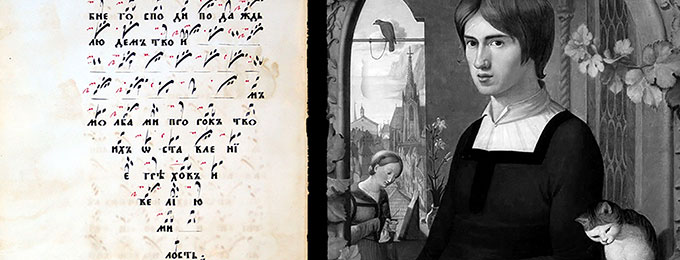 БНЕ ГО СПО ДИ ПО ДА ЖДЬ
ЛЮ ДЕМЪ ТВО И
МЪ
МО ЛБА МИ ПРО РОКЪ ТВО
ИХЪ Ѡ СТА ВЛЕ НЇ
Е ГРѢ ХОВЪ И
ВЕ ЛІ Ю
МИ
ЛОСТЬ